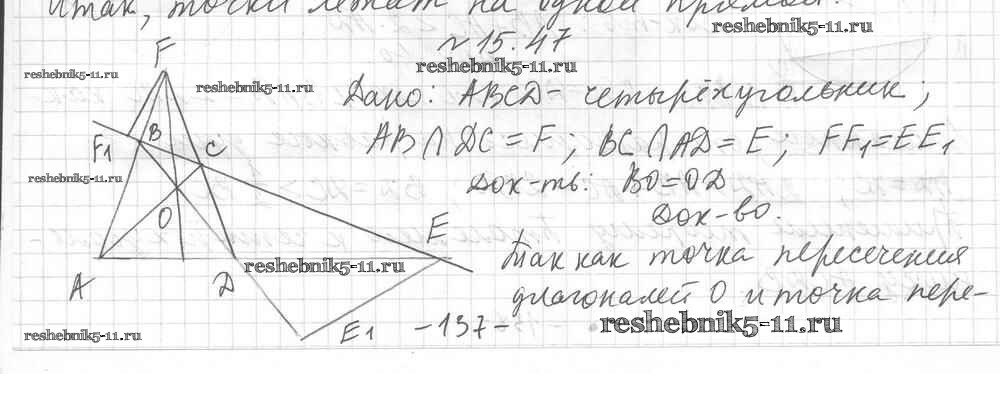 итак, точки лежат на одной прямой.
reshebnik5-11.ru
№15.47
reshebnik5-11.ru
F
reshebnik5-11.ru
reshebnik5-11.ru
Дано: ABCD- четырёхугольник;
F1 B C
AB ∩ DC = F; BC ∩ AD = E; FF1=EE1
reshebnik5-11.ru
Док-ть: BO=OD
O
Док-во.
E
Так как точка пересечения
reshebnik5-11.ru
A D
диагоналей O и точка пере-
reshebnik5-11.ru
E1
-137-
reshebnik5-11.ru